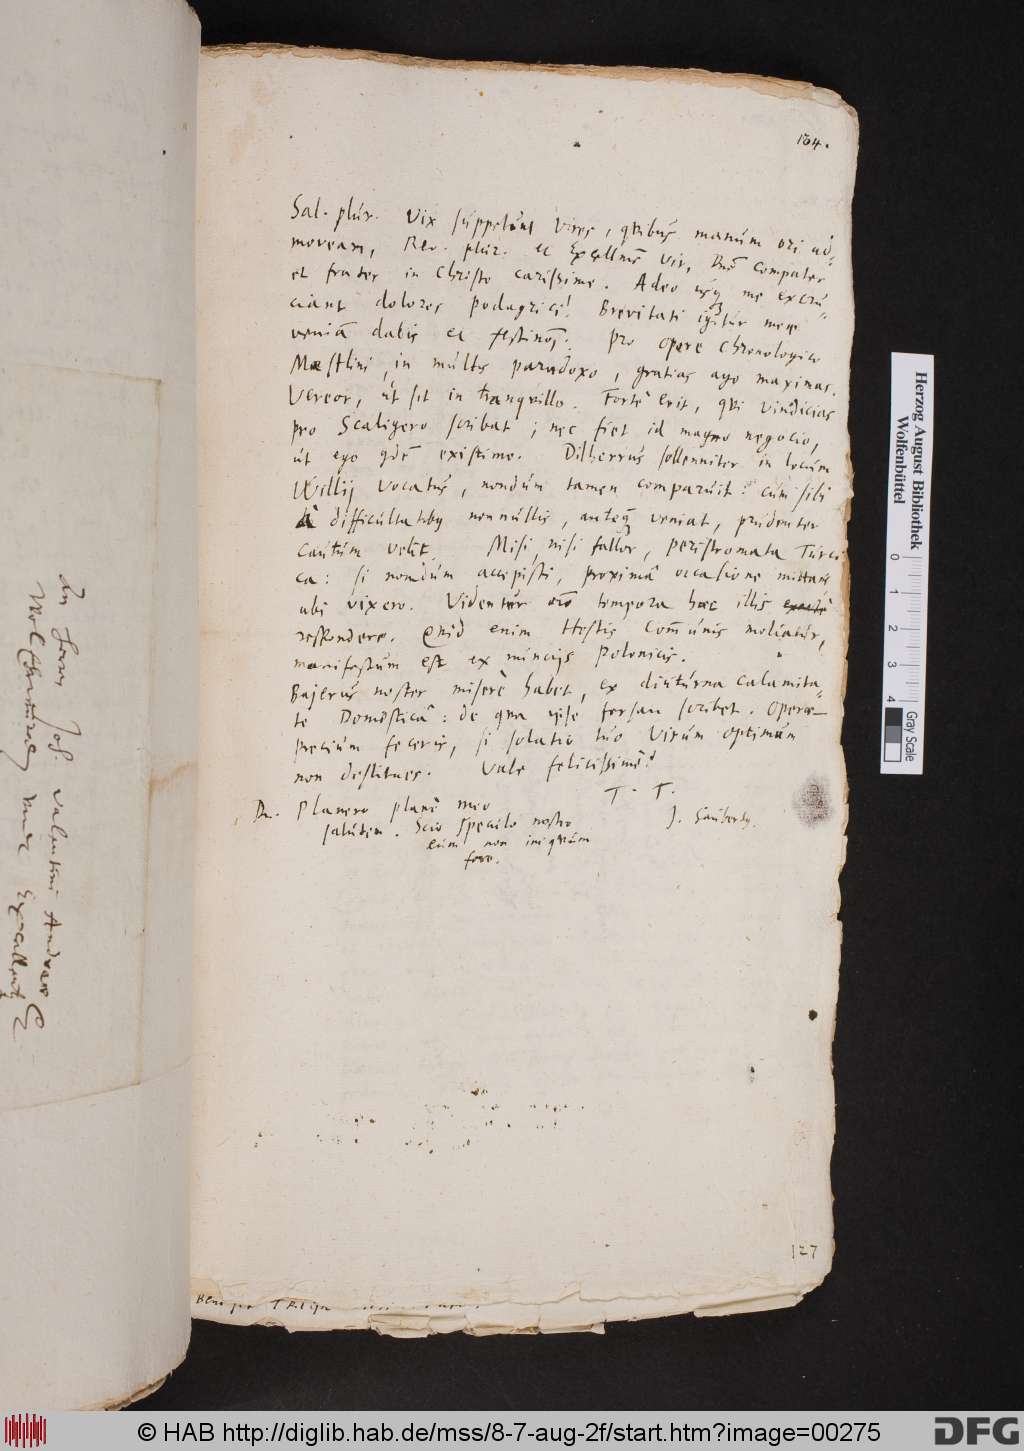 164.
Sal. plur. Vix suppetunt vires, quibus manum ori ad-
moveam, Rev. plur. et Excellme Vir, Dne Compater
et frater in Christo carissime. Adeo usq me excru-
ciant dolores podagrici! Brevitati igitur meae
veniam dabis et festinoj. Pro opere Chronologico
Maestlini, in multis paradoxo, gratias ago maximas.
Vereor, ut sit in tranquillo. Forte erit, qui vindicias
pro Scaligero scribat; nec fiet id magno negocio,
ut ego qdem existimo. Dilherrus sollenniter in locum
Willij vocatus, nondum tamen comparuit: cum sibi
à difficultatibus nonnullis, anteq veniat, prudenter
cautum velit. Misi, nisi fallor, peristromata Turci
ca: si nondum accepisti, proximâ occasione mittam
ubi vixero. Videntur oio tempora haec illis
respondere. Quid enim Hostis Communis moliatur,
manifestum est ex nuncijs Polonicis.
Bajerus noster miserè habet, ex diuturna calamita-
te Domesticâ: de qua ipse forsan scribet. Operae
precium feceris, si solatio tuo Virum optimum
non destitues. Vale felicissimè!
T. T.
J. Saubertq.
Dn. Planero planè meo
salutem. Scio speculo nostro
eum non iniquum
fore.
127
An Herrn Joh. Valentini Andreae
Herzog August Bibliothek
Wolfenbüttel
0 1 2 3 4
Gray Scale
© HAB http://diglib.hab.de/mss/8-7-aug-2f/start.htm?image=00275
DFG